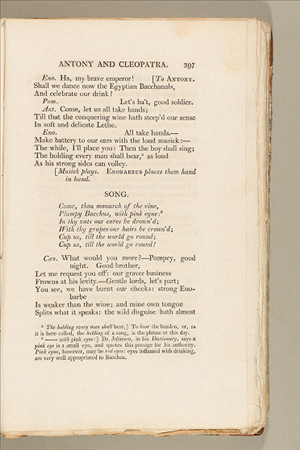 ANTONY AND CLEOPATRA. 397
Eno. Ha, my brave emperor! [To ANTONY.
Shall we dance now the Egyptian Bacchanals,
And celebrate our drink?
Pom. Let's ha't, good soldier.
Ant. Come, let us all take hands;
Till that the conquering wine hath steep'd our sense
In soft and delicate Lethe.
Eno. All take hands.—
Make battery to our ears with the loud musick:—
The while, I'll place you: Then the boy shall sing;
The holding every man shall bear,⁸ as loud
As his strong sides can volley.
[Musick plays. ENOBARBUS places them hand
in hand.
SONG.
Come, thou monarch of the vine,
Plumpy Bacchus, with pink eyne:⁹
In thy vats our cares be drown'd;
With thy grapes our hairs be crown'd;
Cup us, till the world go round;
Cup us, till the world go round!
Cæs. What would you more?—Pompey, good
night. Good brother,
Let me request you off: our graver business
Frowns at his levity.—Gentle lords, let's part;
You see, we have burnt our cheeks: strong Eno-
barbe
Is weaker than the wine; and mine own tongue
Splits what it speaks: the wild disguise hath almost
⁸ The holding every man shall bear,] To bear the burden, or, as
it is here called, the holding of a song, is the phrase at this day.
⁹ —— with pink eyne:] Dr. Johnson, in his Dictionary, says a
pink eye is a small eye, and quotes this passage for his authority.
Pink eyne, however, may be red eyes: eyes inflamed with drinking,
are very well appropriated to Bacchus.